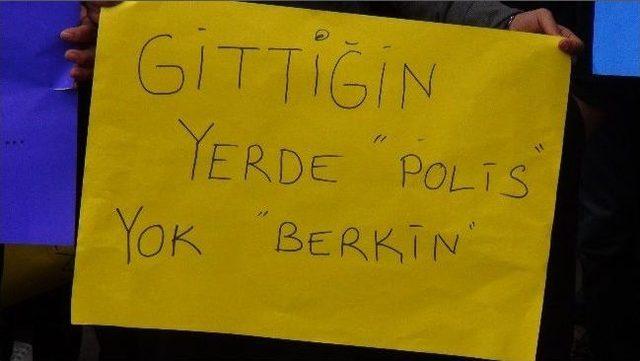 GİTTİĞİN
YERDE "POLİS"
YOK "BERKİN"
...